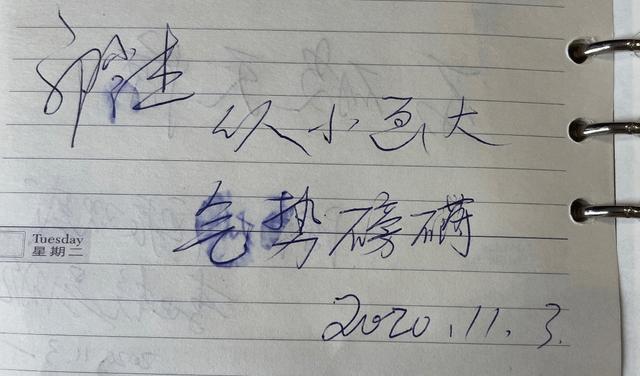 以小画大
气势磅礴
Tuesday
星期二
2020.11.3.